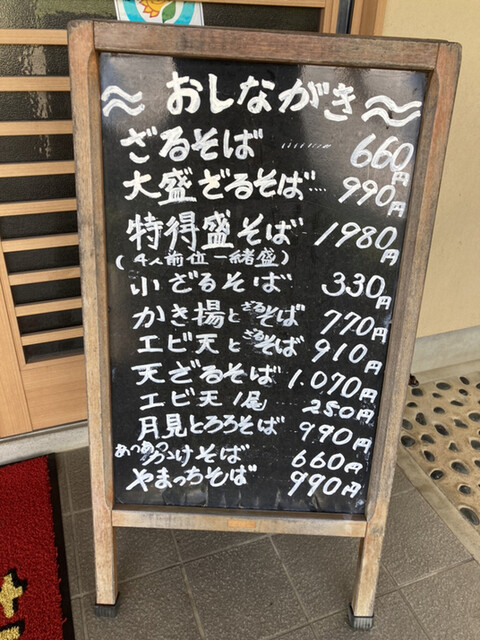 おしながき
ざるそば 660円
大盛ざるそば 990円
特得盛そば 1980円
(4人前位一緒盛)
小ざるそば 330円
かき揚とざるそば 770円
エビ天とざるそば 910円
天ざるそば 1.070円
エビ天1尾 250円
月見とろろそば 990円
あつあつ
ぶっかけそば 660円
やまっちそば 990円